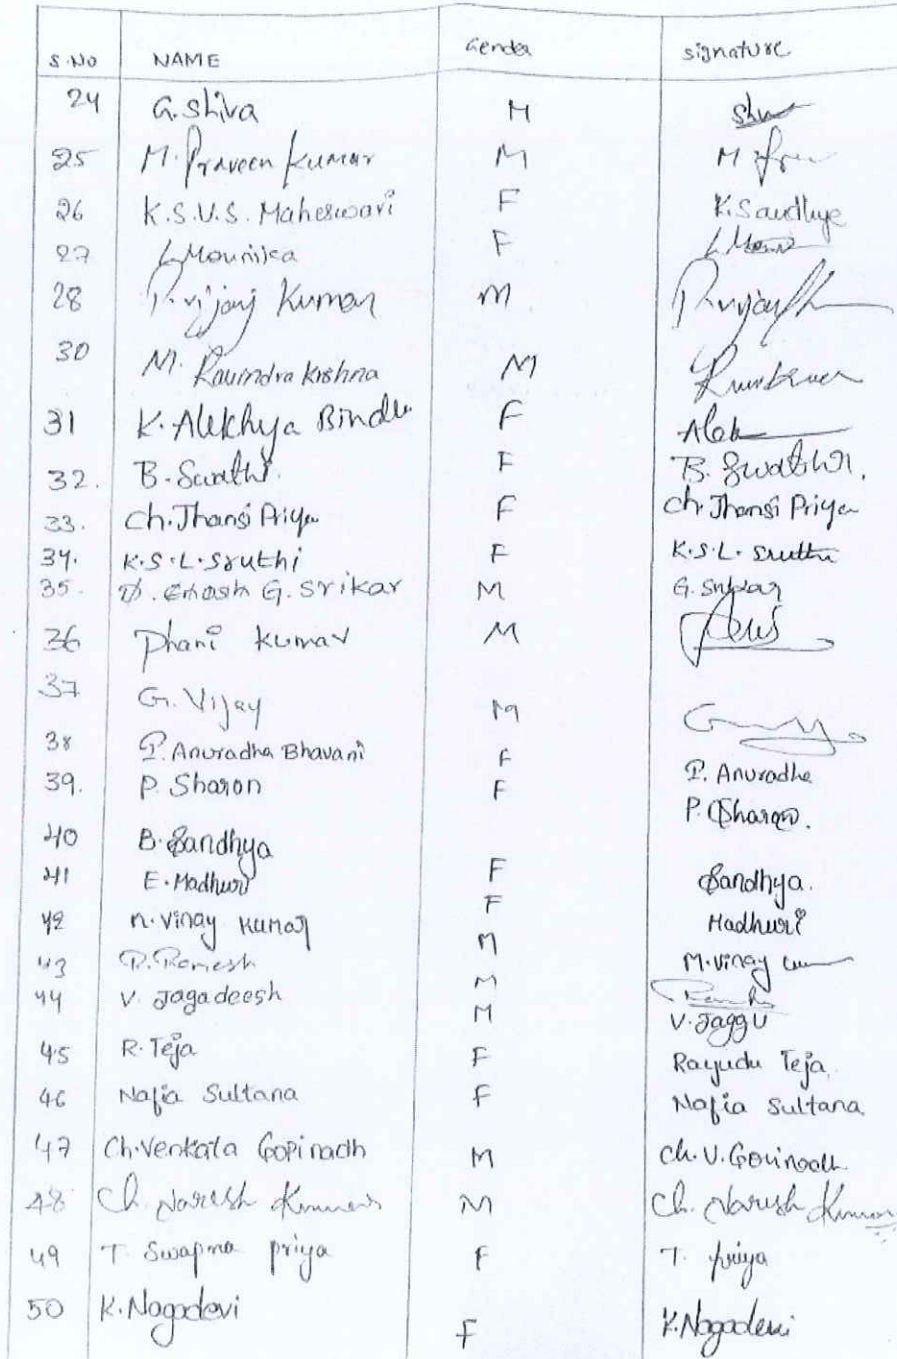 S.NO NAME Gender signature
24 G. Shiva M
25 M. Praveen Kumar M M
26 K.S.V.S. Maheswari F K. Sandhya
27 L Mounika F
28 P. Vijay Kumar M
30 M. Ravindra Krishna M
31 K. Alekhya Bindu F Alek
32. B. Swathi. F B. Swathi.
33. Ch. Jhansi Priya F Ch. Jhansi Priya
34. K.S.L. Sruthi F K.S.L. Sruthi
35. G. Srikar M G. Srikar
36 Phani Kumar M
37 G. Vijay M
38 P. Anuradha Bhavani F P. Anuradha
39. P. Sharon F P. Sharon.
40 B. Sandhya F Sandhya.
41 E. Madhuri F Madhuri
42 M. Vinay Kumar M M. Vinay
43 P. Ramesh M
44 V. Jagadeesh M V. Jaggu
45 R. Teja F Rayudu Teja.
46 Nafia Sultana F Nafia Sultana
47 Ch. Venkata Gopinadh M Ch. V. Gopinadh
48 Ch. Naresh Kumar M Ch. Naresh Kumar
49 T. Swapna priya F T. priya
50 K. Nagadevi F K. Nagadevi